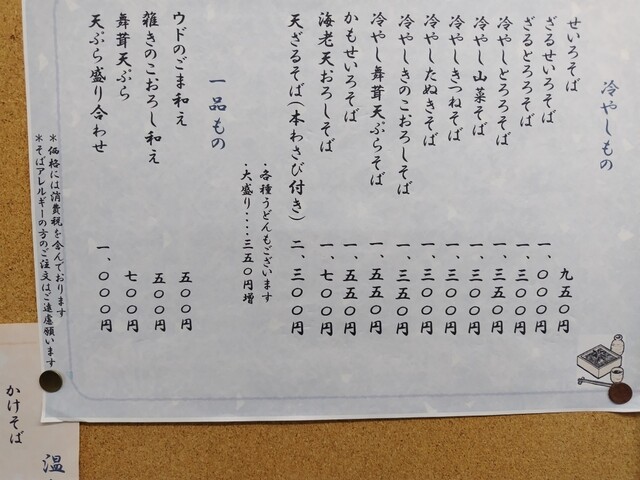 冷やしもの
せいろそば 九五〇円
ざるせいろそば 一、〇〇〇円
ざるとろろそば 一、三〇〇円
冷やしとろろそば 一、三〇〇円
冷やし山菜そば 一、三〇〇円
冷やしきつねそば 一、三〇〇円
冷やしたぬきそば 一、三〇〇円
冷やしきのこおろしそば 一、三五〇円
冷やし舞茸天ぷらそば 一、五五〇円
かもせいろそば 一、五五〇円
海老天おろしそば 一、七〇〇円
天ざるそば(本わさび付き) 二、三〇〇円
・各種うどんもございます
・大盛り・・・・三五〇円増
一品もの
ウドのごま和え 五〇〇円
雑きのこおろし和え 五〇〇円
舞茸天ぷら 七〇〇円
天ぷら盛り合わせ 一、〇〇〇円
*価格には消費税を含んでおります
*そばアレルギーの方のご注文はご遠慮願います
温
かけそば